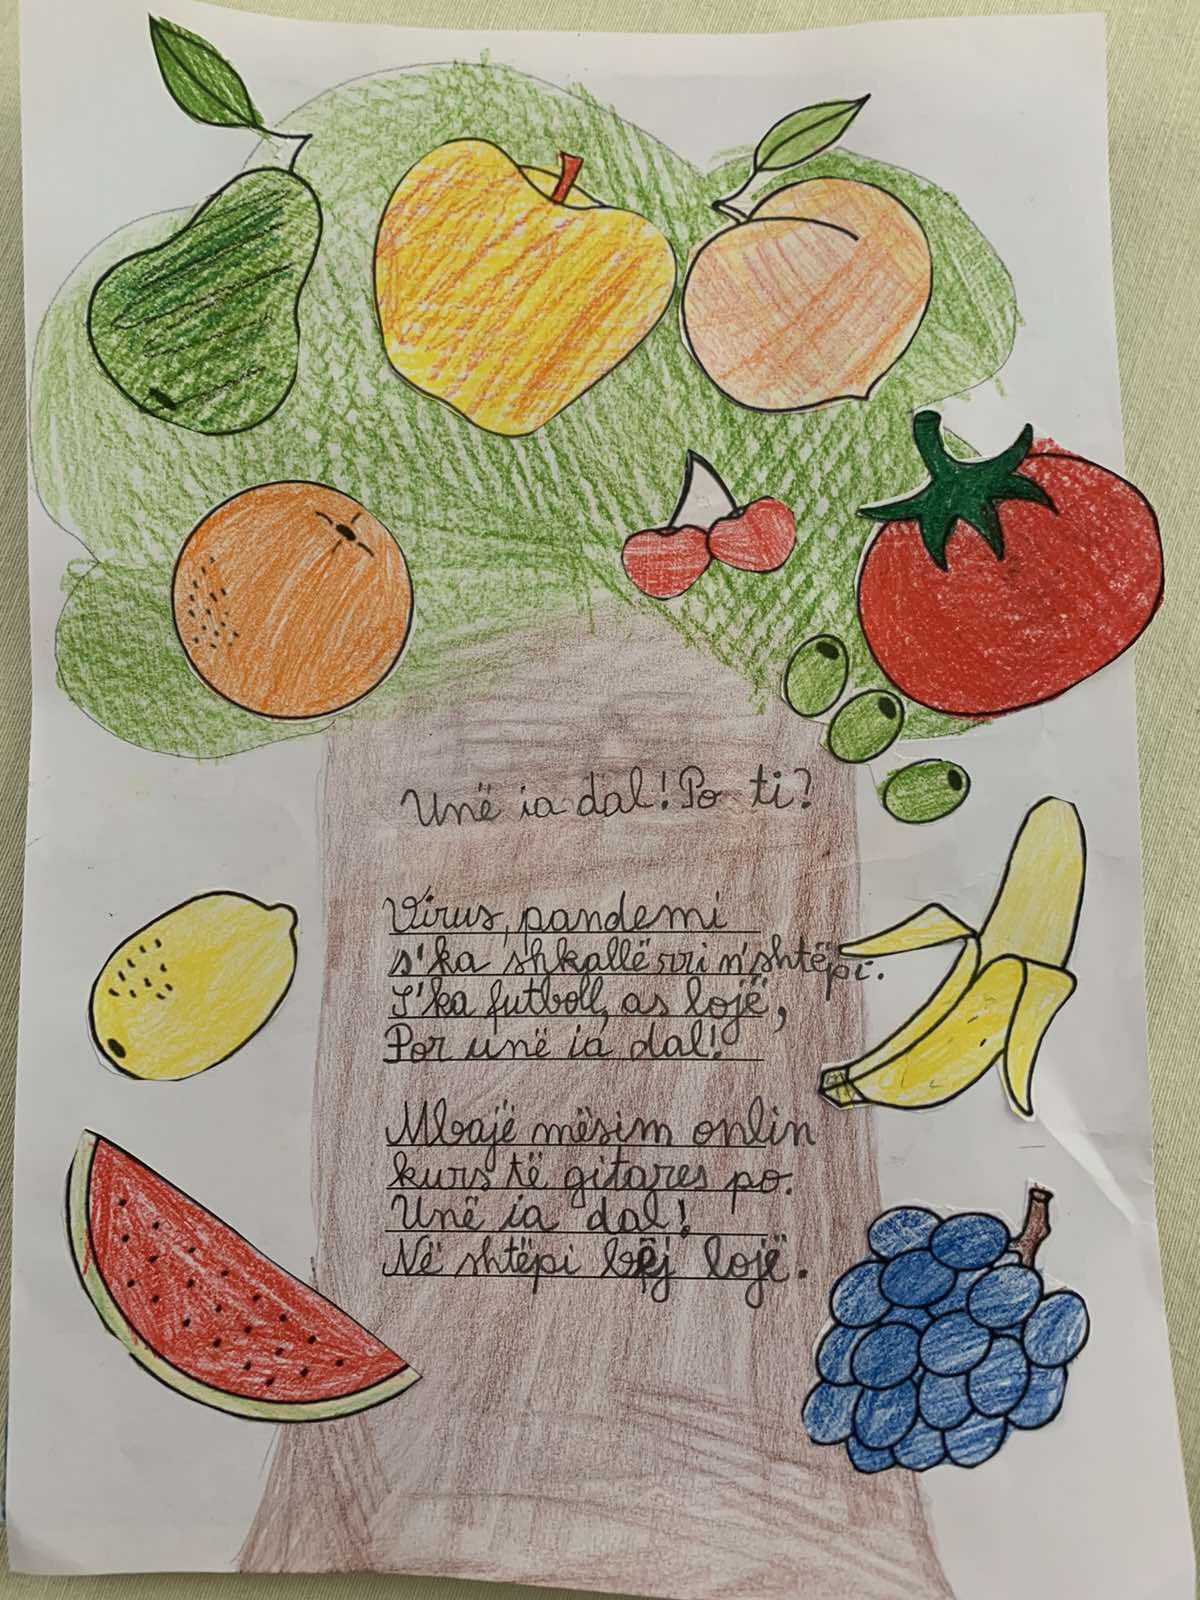 Unë ia dal! Po ti?
Virus, pandemi
s'ka shkallë rri n'shtëpi.
S'ka futboll, as lojë,
Por unë ia dal!
Mbajë mësim onlin
kurs të gitares po.
Unë ia dal!
Në shtëpi bëj lojë.